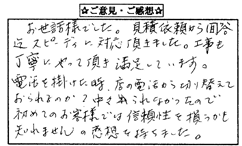 ☆ご意見・ご感想☆
お世話様でした。見積依頼から回答
迄スピーディに対応頂きました。工事も
丁寧にやって頂き満足しています。
電話を掛けた時、店の電話から切り替えて
おられるのか? 中々出られなかったので
初めてのお客様では信頼性を損うかも
知れませんの感想を持ちました。